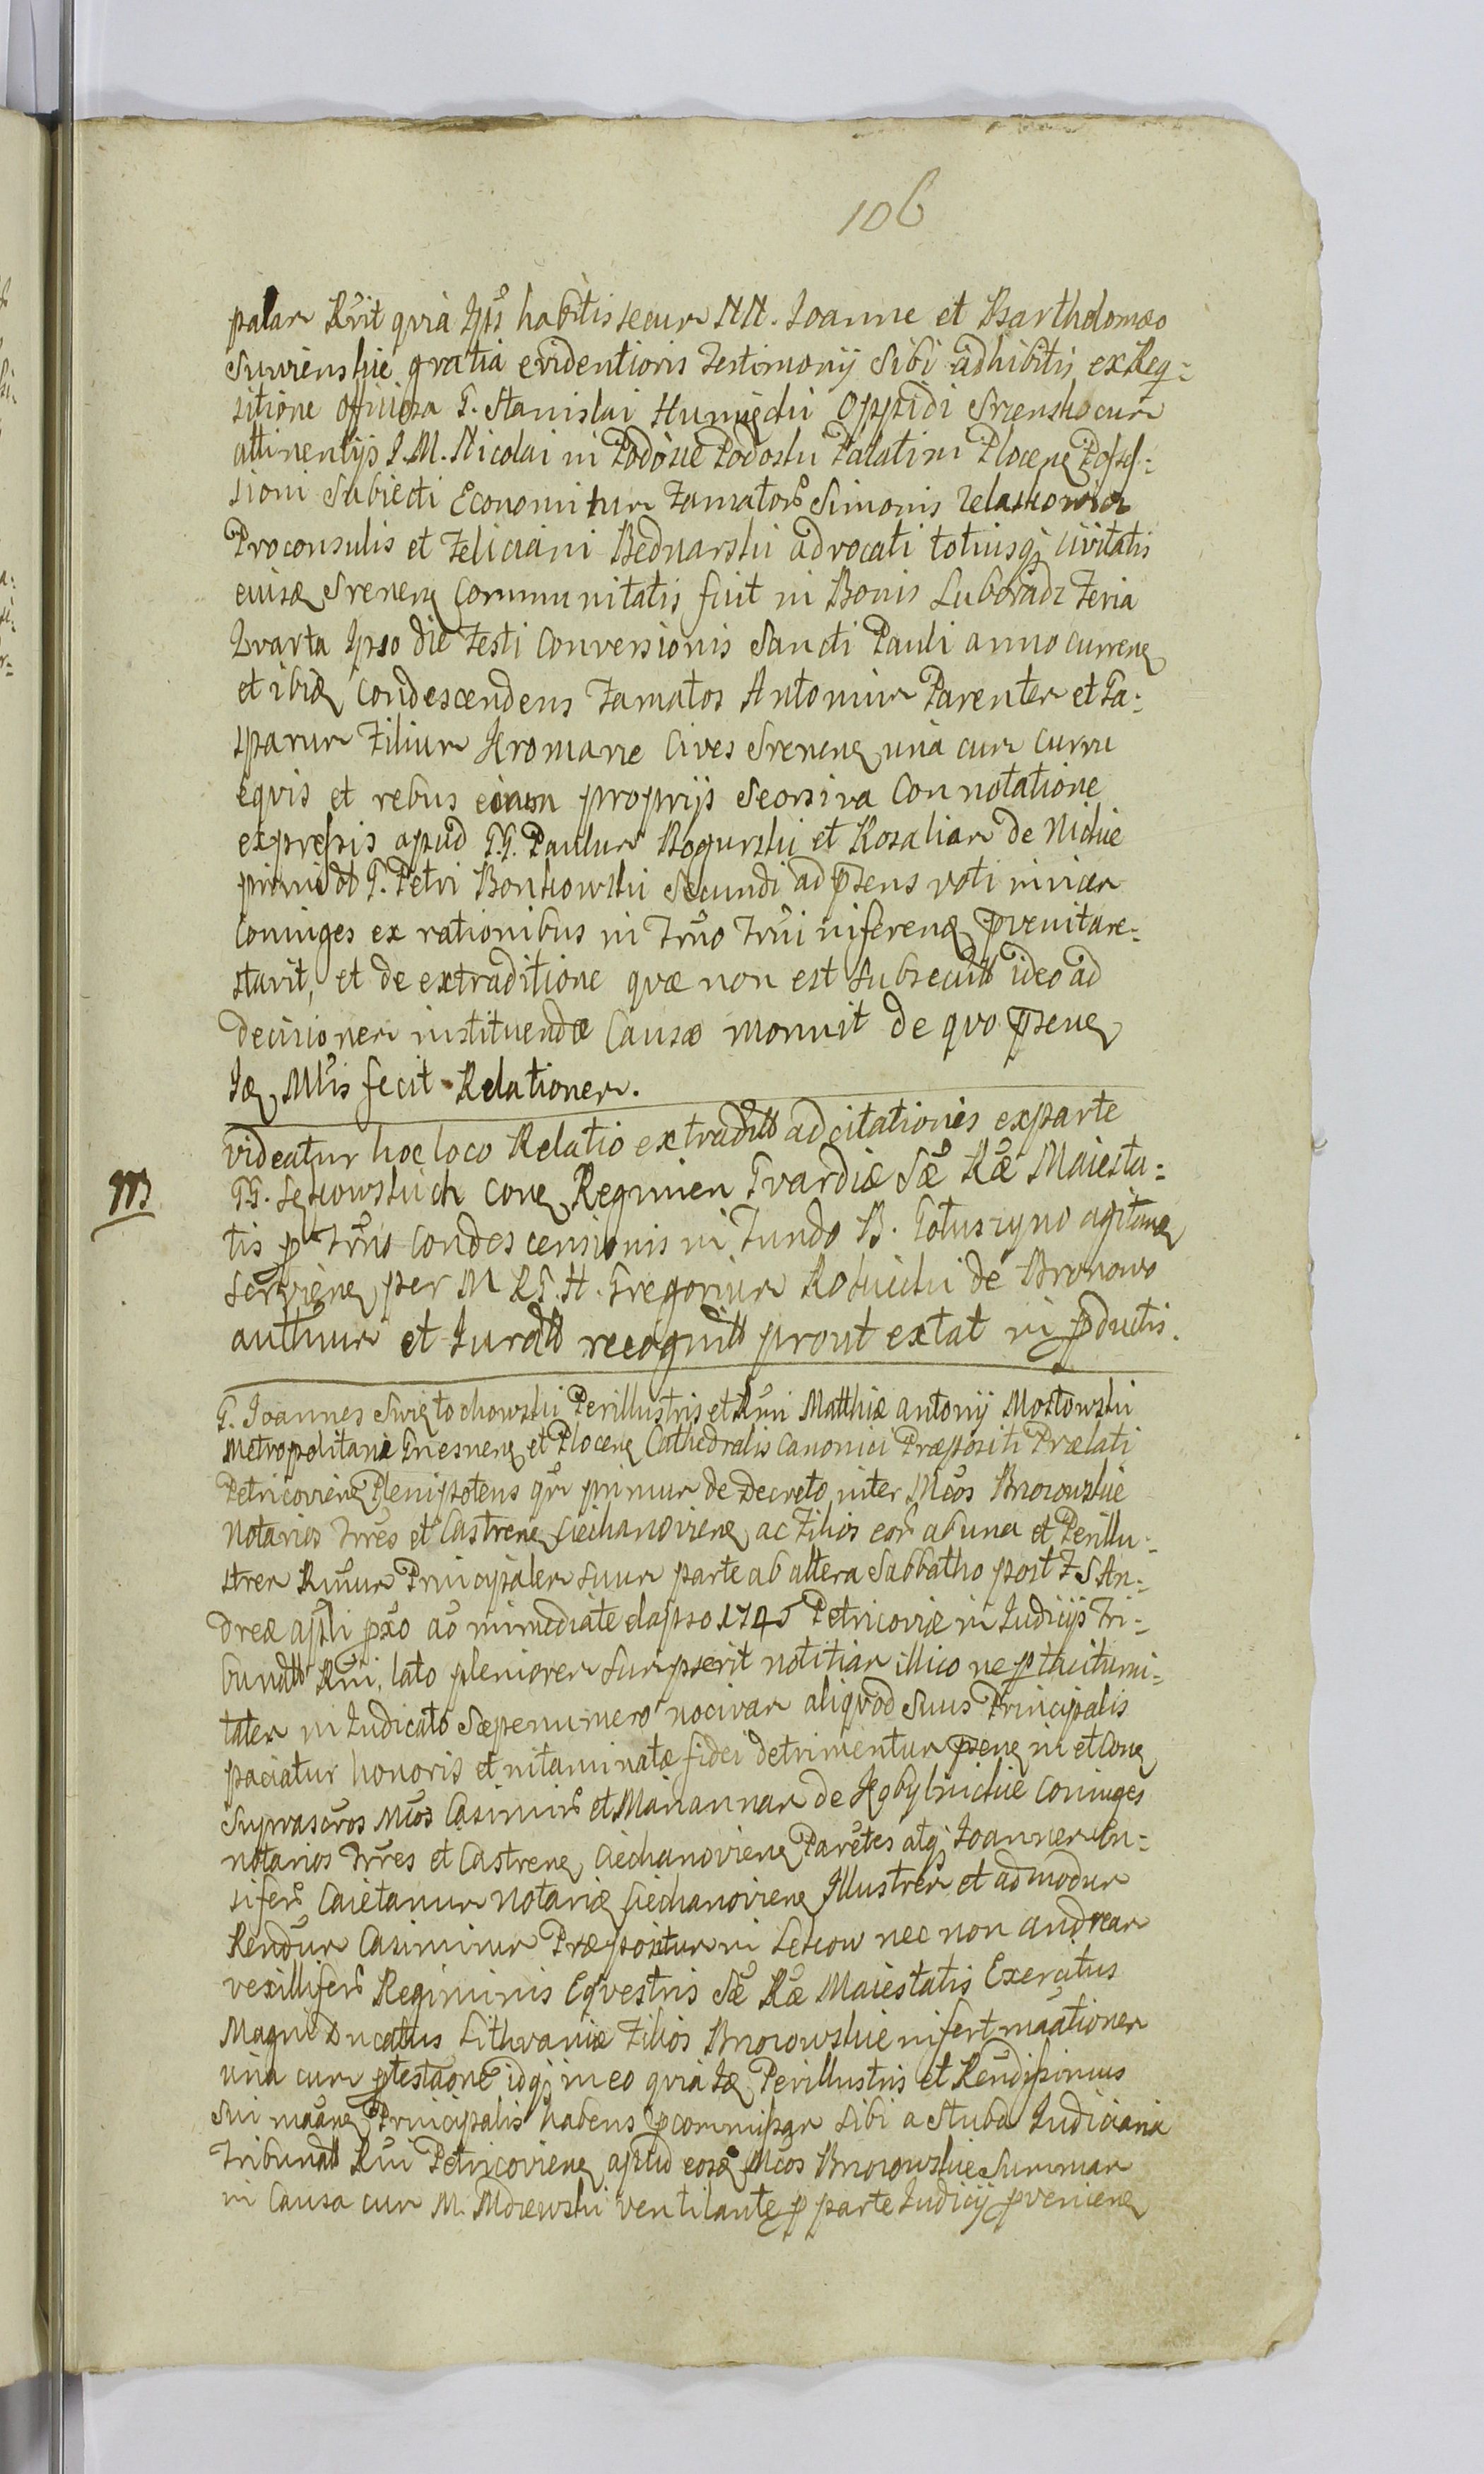 106
palam Rvit quia Ipse habitis secum NN. Joanne et Bartholomæo
gratia evidentioris testimonij sibi adhibitis ex Req=
sitione officiosa G. Stanislai Humięcki Oppidi Srzensko cum
attinentijs I. M. Nicolai in Podosie Podoski Palatini Plocen Posses=
sioni subiecti Economi tum Famator Simonis
Proconsulis et Feliciani Bednarski advocati totiusq civitatis
eiusd Srenen Communitatis fuit in Bonis Luboradz Feria
Quarta Ipso die Festi Conversionis Sancti Pauli anno curren
et ibid condescendens Famatos Antonium Parentem et Ga=
sparum Filium Kromarze Cives Srenen una cum curru
equis et rebus eorum proprijs seorsiva Connotatione
expressis apud G.G. Paulum Bogurski et Rosaliam de Nickie
primi ol G. Petri Bonkowski secundi ad psens voti invicem
Coniuges ex rationibus in Trno Trni inferend pvenit are=
stavit, et de extraditione quæ non est subsecuta ideo ad
decisionem instituendæ Causæ monuit de quo psens
Id Mlis fecit Relationem.
videatur hoc loco Relatio extradit ad citationis exparte
m GG. Lękowskich Con Regimen Gvardiæ Sæ Ræ Maiesta=
tis p Trno Condescensionis in Fundo B. Gotuszyno agitand
servien per M R G. H. Gregorium de Bronowo
authum et Jurat recognit prout extat in pductis.
G. Joannes Swiętochowski Perillustris et Rmi Matthiæ Antonij Mostowski
Metropolitanæ Gnesnen et Plocen Cathedralis Canonici Præpositi Prælati
Petricovien Plenipotens qm primum de Decreto inter Mcos Brzozowskie
Notarios Trres et Castren Ciechanovien ac Filios eor ab una et Perillu=
strem Rmum Principalem suum parte ab altera Sabbatho post F S An=
dreæ apli pxo ao immediate elapso 1745 Petricoviæ in Iudicijs Tri=
bunal Rni, lato pleniorem sumpserit notitiam illico ne p tacitumi=
tatem in Iudicato sæpenumero nocivam aliquod suus Principalis
paciatur honoris et intaminatæ fidei detrimentum psens in et Con
suprascros Mcos Casimir et Mariannam de Kobylnickie coniuges
notarios Trres et Castren Ciechanovien Parentes atq Joannem En=
sifer Caietanum Notarid Ciechanovien Illustrem et admodum
Rendum Casimirum Præpositum in Lekow nec non Andream
vexillifer Regiminis Eqvestris Sæ Ræ Maiestatis Exercitus
Magni Ducatus Lithvaniæ Filios Brzozowskie infert maationem
una cum ptestaone idq in eo quia Id Perillustris et Rendissimus
sui maan Principalis habens pcommissam sibi a Stuba Iudiciaria
Tribunal Rni Petricovien apud eosd Mcos Brzozowskie Summam
in Causa cum M. Mdzewski ventilante p parte Iudicij pvenien